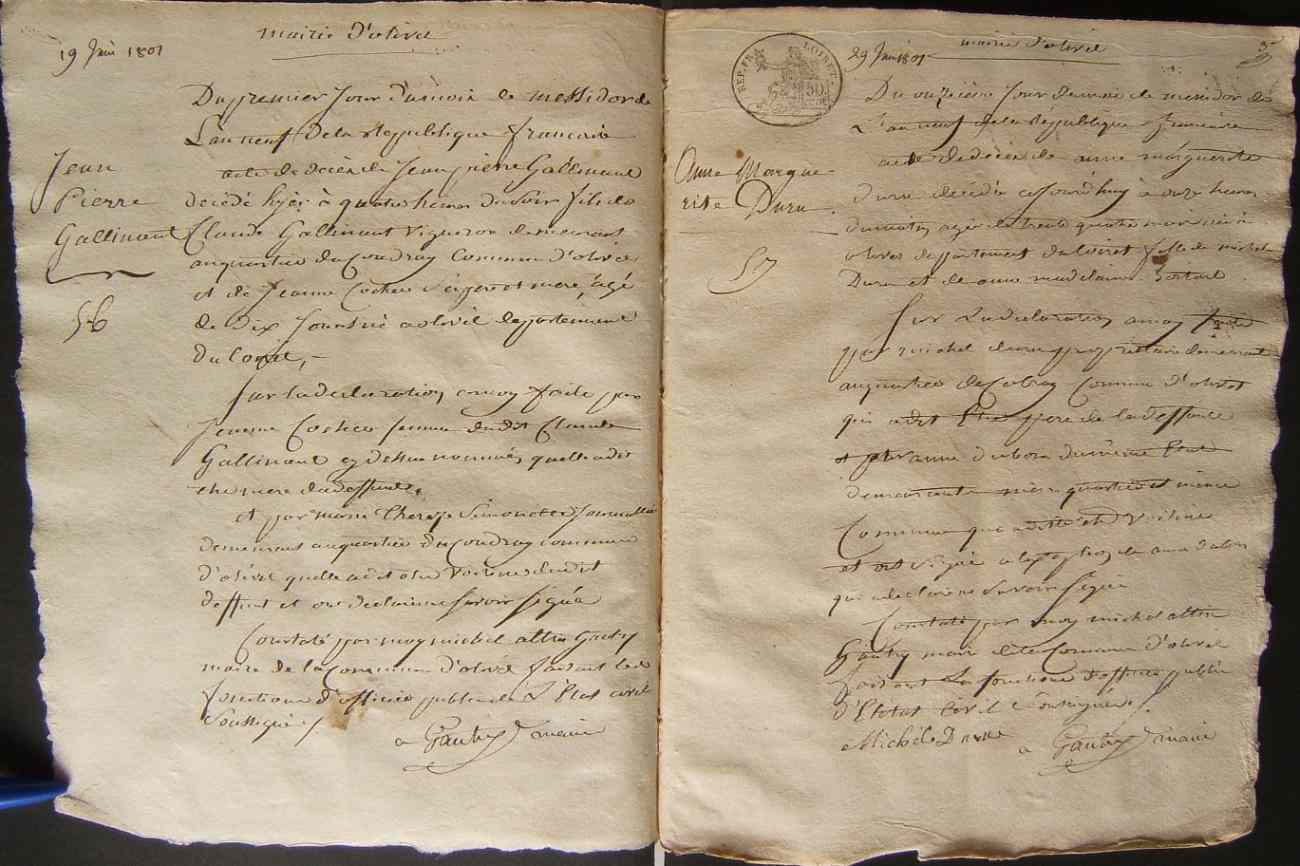 19 Juin 1801
mairie d'olivet
Du premier Jour du mois de messidor de
L'an neuf de la République francaise
acte de décès de Jean pierre Gallinant
décédé hyer à quatre heures du soir fils de
Claude Gallinant Vigneron demeurant
au quartier du Coudray Commune d'olivet
et de Jeanne ses pere et mere, agé
de Dix Jours né a olivet departement
du Loiret,
Jean
Pierre
Gallinant
56
Sur la declaration a moy faite par
Jeanne femme dudit Claude
Gallinant cy dessus nommés, quelle a dit
être mere du deffunt,
et par marie Therese Simonet
demeurant au quartier du Coudray commune
d'olivet quelle a dit être voisine dudit
deffunt et ont declaré ne savoir signer
Constaté par moy michel Gautry
maire de la Commune d'olivet faisant les
fonctions d'officier public de L'État civil
Soussigné
Gautry maire
REP. FRA. LOIRET
29 Juin 1801
mairie d'olivet
Du onzieme Jour du mois de messidor de
L'an neuf de la République francaise
acte de décès de anne marguerite
Duru décédée ce jourd'huy à onze heures
du matin, agée de trente quatre née à
olivet departement du loiret fille de michel
Duru et de anne madelaine
Anne Margue
rite Duru
57
Sur La declaration a moy faite
par michel duru proprietaire demeurant
au quartier de Commune d'olivet
qui a dit Etre pere de la deffunte
et par anne du même
demeurante même quartier et même
Commune qui a dit être Voisine
et ont signé a l'exception de anne
qui a declaré ne savoir signer
Constaté par moy michel
Gautry maire de la Commune d'olivet
faisant Les fonctions d'officier public
d'Etat Civil Soussigné
Michel Duru
Gautry maire